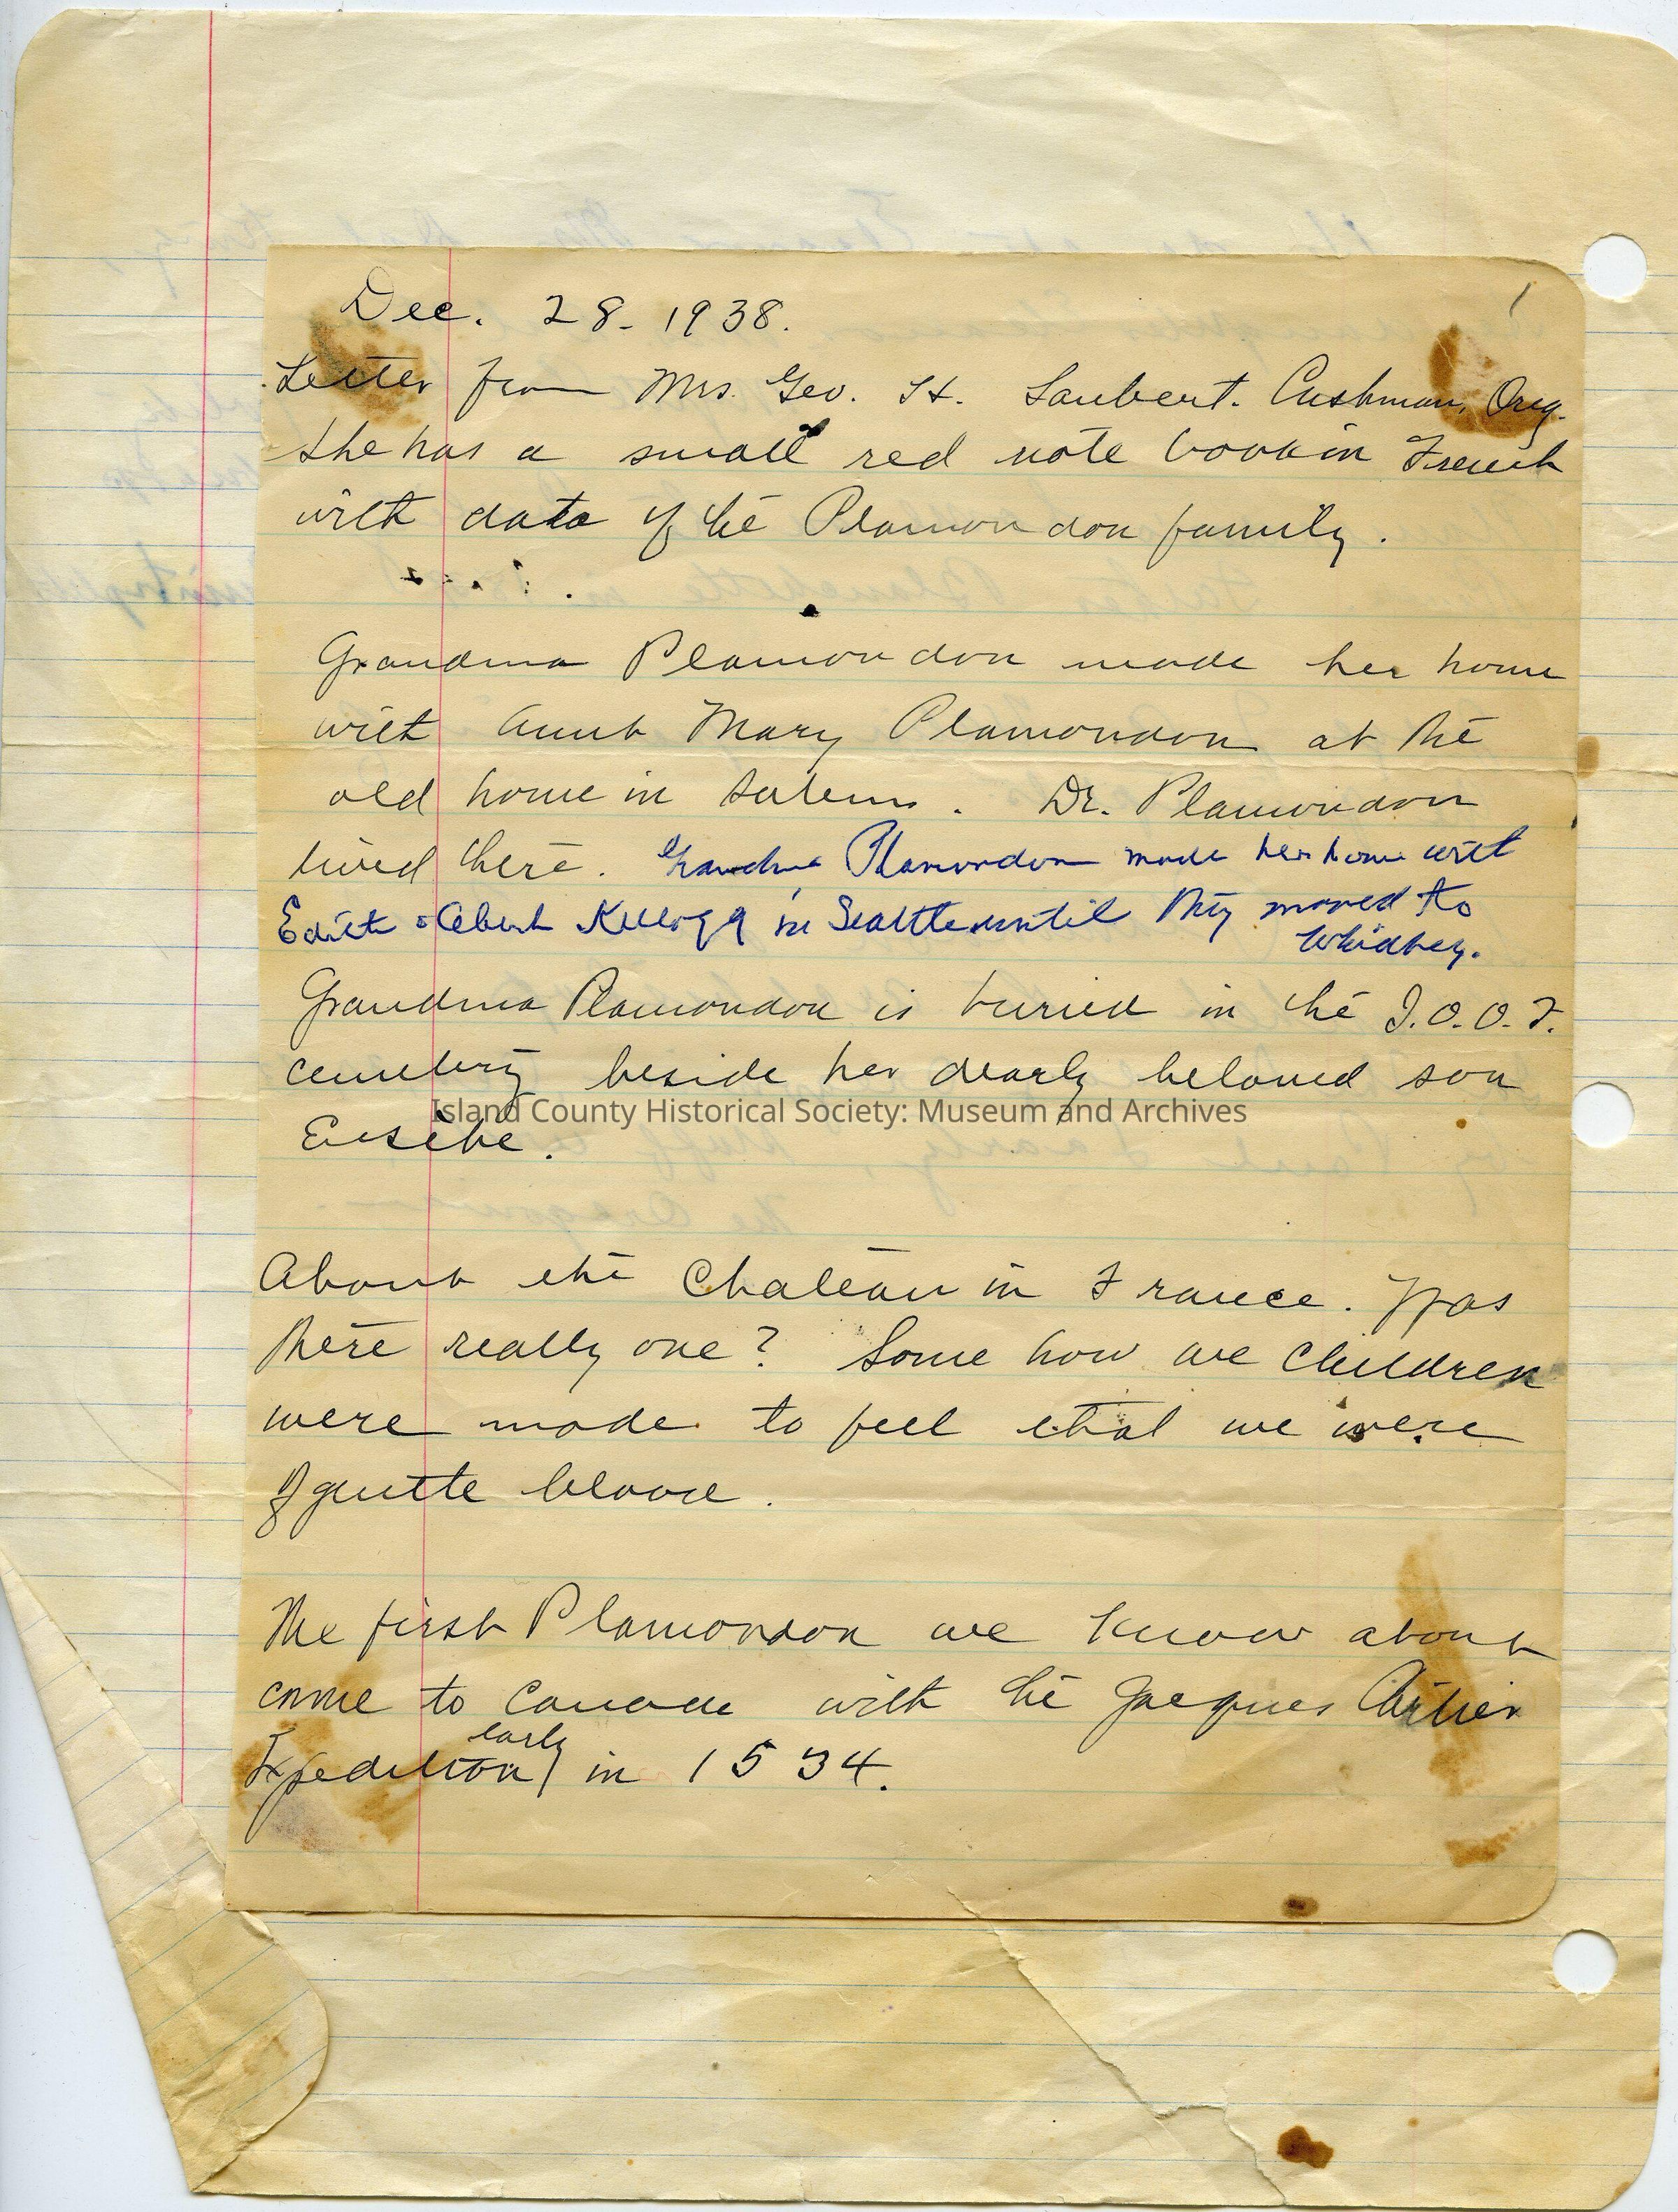 1
Dec. 28- 1938.
Letter from Mrs. Geo. H. Laubert. Cushman, Oreg.
She has a small red note book in French
with data of the Plamondon family.
Grandma Plamondon made her home
with Aunt Mary Plamondon at the
old home in Salem. Dr. Plamondon
lived there. Grandma Plamondon made her home with
Edith & Albert Kellogg in Seattle until they moved to
Whidbey.
Grandma Plamondon is buried in the I.O.O.F.
cemetery beside her dearly beloved son
Eusebe.
Island County Historical Society: Museum and Archives
About the Chateau in France. Was
there really one? Some how we children
were made to feel that we were
of gentle blood.
The first Plamondon we know about
came to Canada with the Jacques Cartier
early
Expedition in 1534.